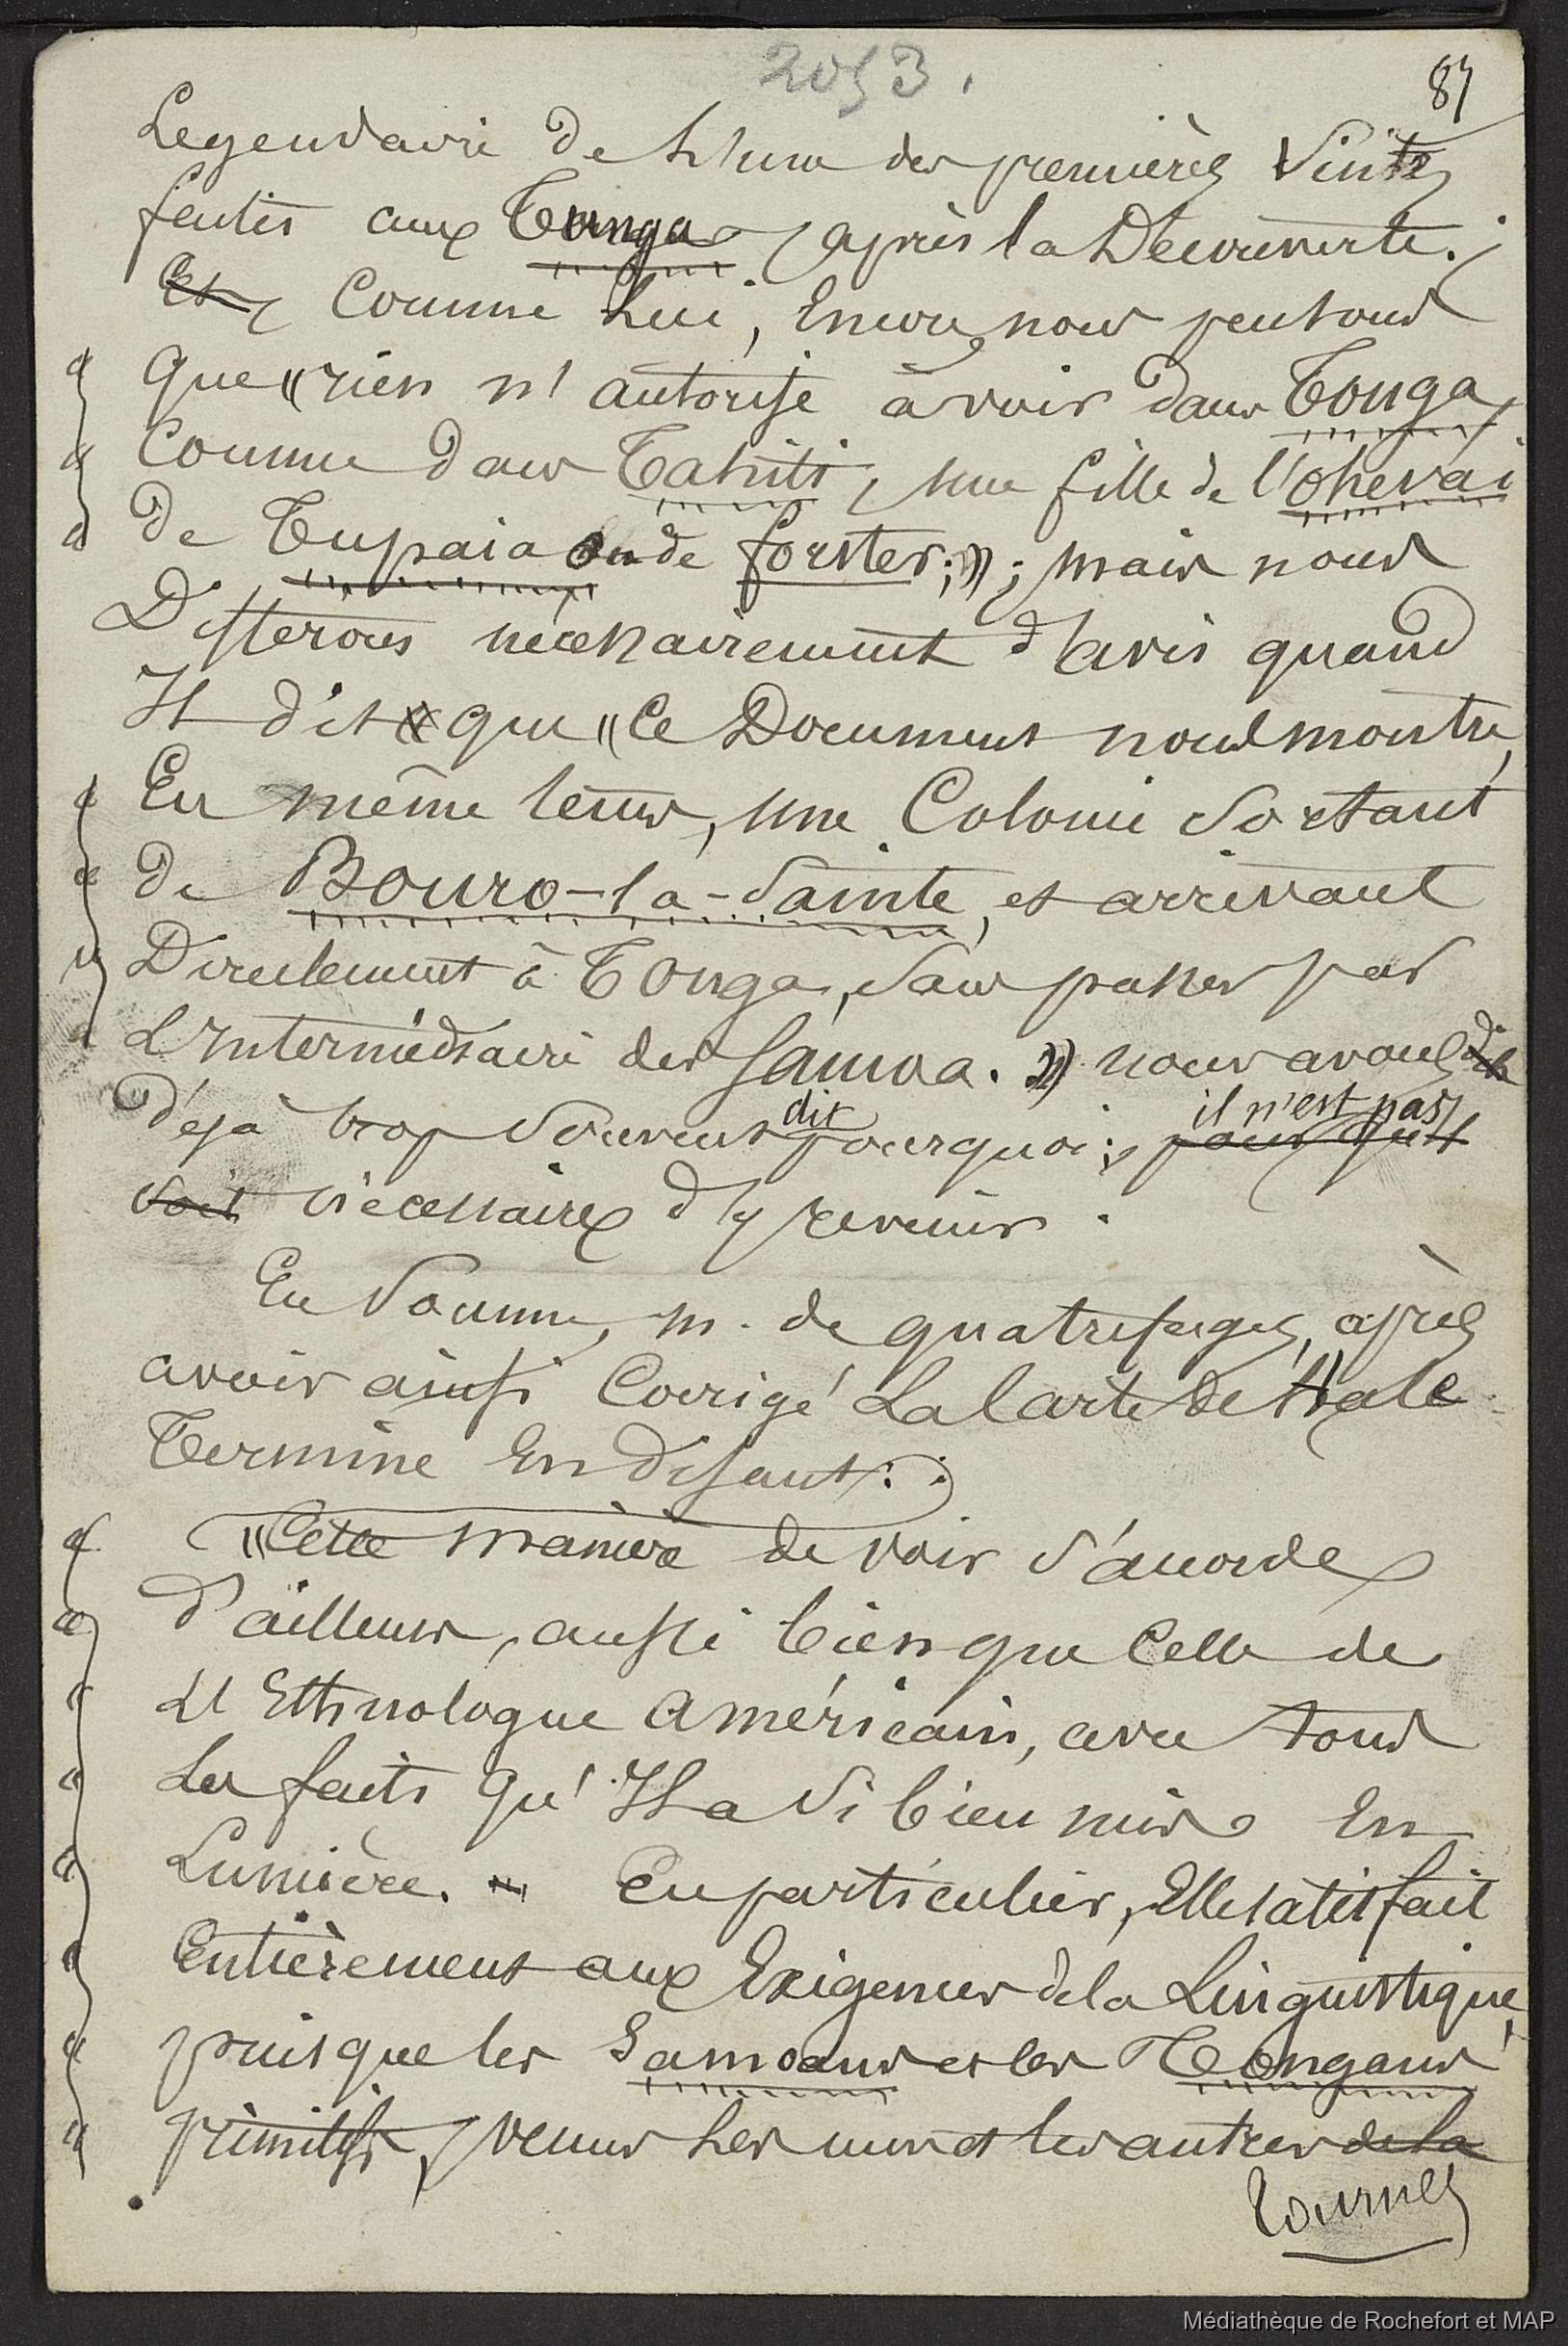 2053.
87
Legendaire de l'une des premières visites
faites aux Tonga, après la Découverte.
Et, Comme Lui, Encore, nous pensons
Que "rien n'autorise à voir dans Tonga,
Comme dans Tahiti, une fille de l'Ohevai
de Tupaia ou de Forster;"; mais nous
Differons nécessairement d'avis quand
Il dit que "Ce Document nous montre,
En même tems, une Colonie sortant
de Bouro-la-Sainte, et arrivant
Directement à Tonga, sans passer par
L'Intermédiaire des Samoa." nous avons dit
déjà trop souvent dit pourquoi; pour qu'il il n'est pas
soit nécessaire d'y revenir.
En Somme, M. de Quatrefages, après
avoir ainsi Corrigé La Carte de Hale
Termine En Disant:
"Cette manière de voir s'accorde
d'ailleurs, aussi bien que Celle de
L'Ethnologue Américain, avec tous
Les faits Qu'Il a si bien mis En
Lumière. En particulier, Elle satisfait
Entièrement aux Exigences de la Linguistique,
puisque les Samoans et les Tongans
primitifs, venus Les uns et les autres de la
Tournez
Médiathèque de Rochefort et MAP